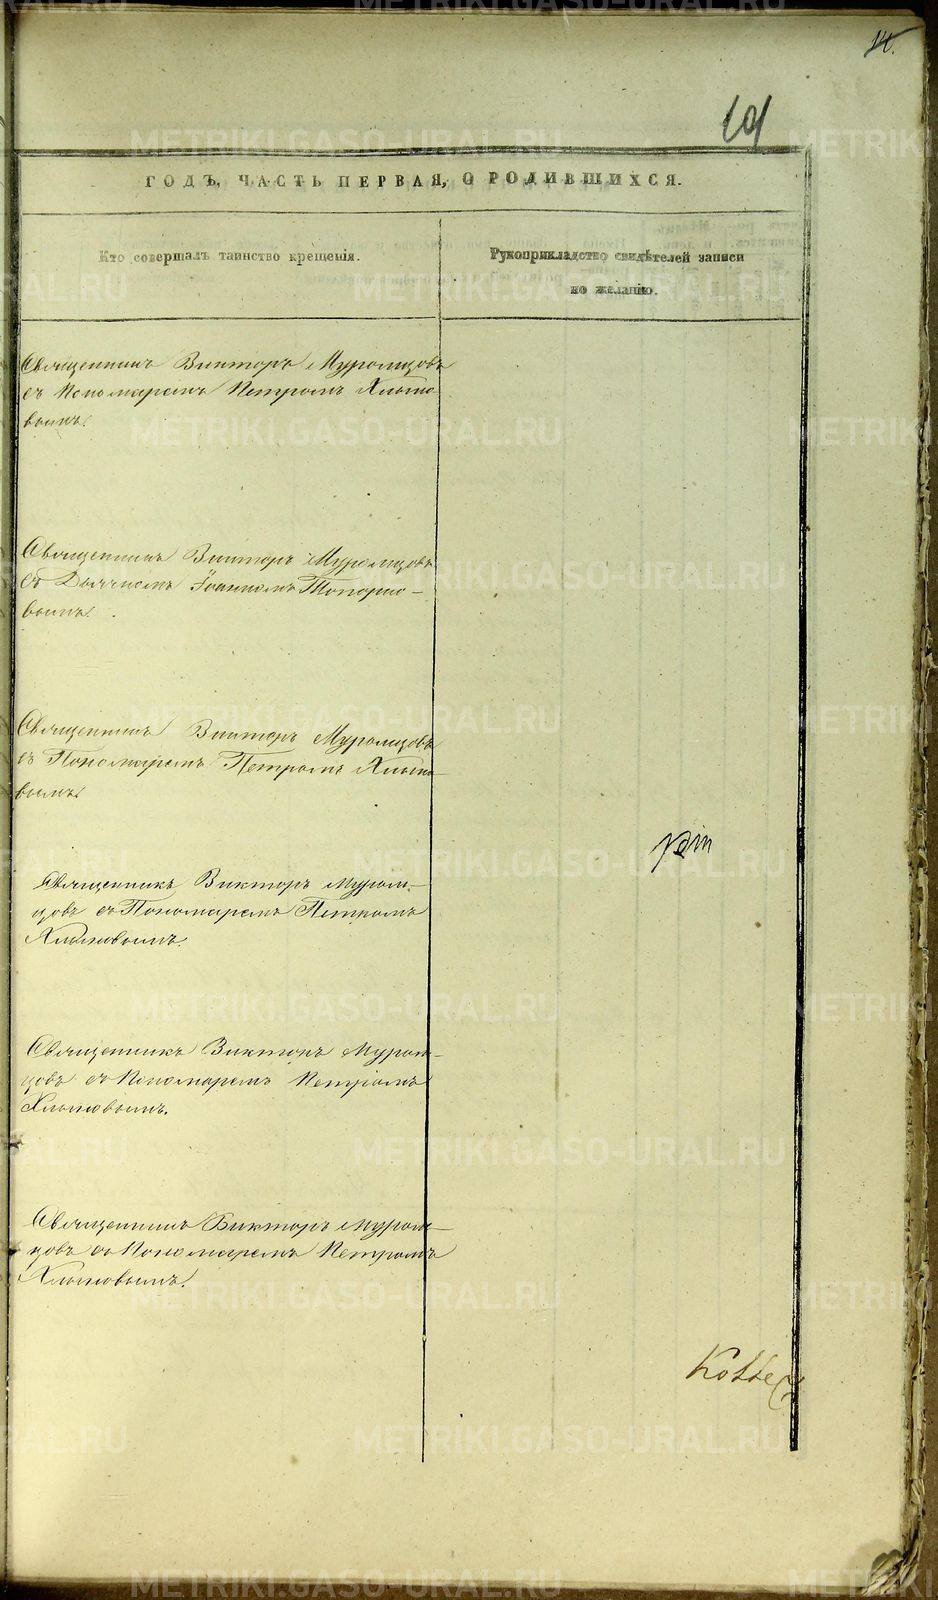 14.
101
ГОДЪ, ЧАСТЬ ПЕРВАЯ, О РОДИВШИХСЯ.
Кто совершалъ таинство крещенія.
Рукоприкладство свидѣтелей записи
по желанію.
Священникъ Викторъ Муромцовъ
съ Пономаремъ Петромъ Хлыно-
вымъ.
Священникъ Викторъ Муромцовъ
съ Дьячкомъ Іоанномъ Топорко-
вымъ.
Священникъ Викторъ Муромцовъ
съ Пономаремъ Петромъ Хлыно-
вымъ.
Священникъ Викторъ Муром-
цовъ съ Пономаремъ Петромъ
Хлыновымъ.
Священникъ Викторъ Муром-
цовъ съ Пономаремъ Петромъ
Хлыновымъ.
Священникъ Викторъ Муром-
цовъ съ Пономаремъ Петромъ
Хлыновымъ.
METRIKI.GASO-URAL.RU